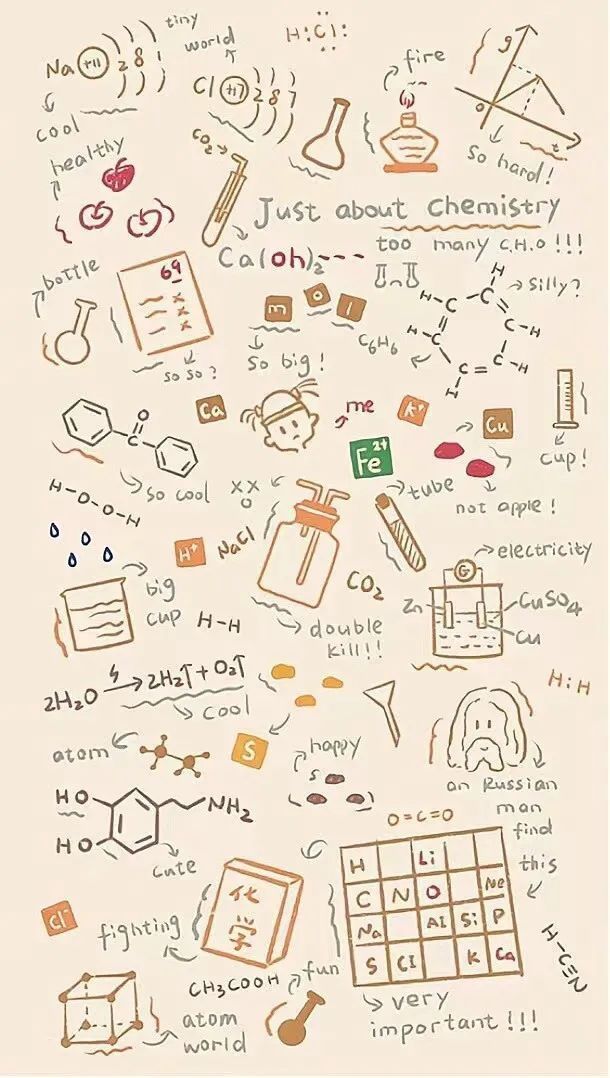 tiny
world
H:Cl:
Na +11 2 8 1
Cl +17 2 8 7
fire
g
o
t
cool
So hard!
healthy
CO₂→
Just about Chemistry
Ca(oh)₂---
too many C.H.O !!!
bottle
69
x
x
x
so so ?
m o l
So big !
C₆H₆
H
H-C C
H-C C-H
C=C-H
H
→ Silly?
Ca
me
K⁺
Cu
Fe²⁺
cup!
not apple !
O
C
so cool
H-O-O-H
XX
O
tube
H⁺
NaCl
CO₂
electricity
G
Zn
CuSO₄
Cu
big
cup
H-H
double
kill!!
2H₂O → 2H₂↑ + O₂↑
cool
H:H
atom
S
happy
S
an Russian
man
find
this
HO
HO
NH₂
cute
O=C=O
H Li
C N O Ne
Na Al Si P
S Cl K Ca
化
学
Cl⁻
fighting
H-C≡N
CH₃COOH
fun
atom
world
very
important !!!